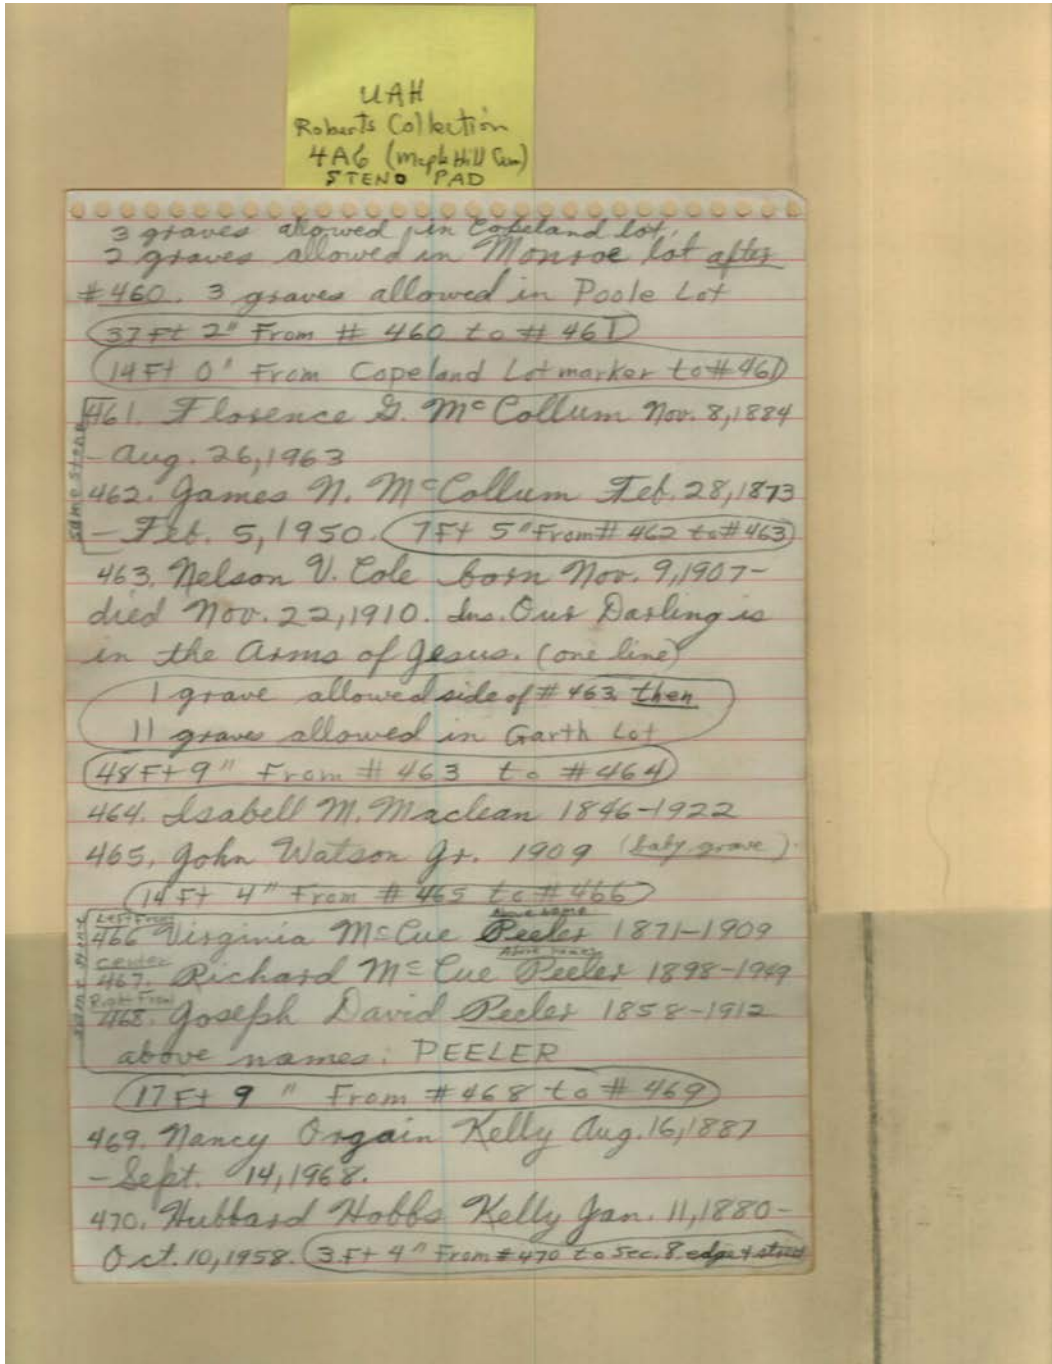 UAH
Roberts Collection
4A6 (Maple Hill Cem)
STENO PAD
3 graves allowed in Copeland lot,
2 graves allowed in Monroe lot after
#460. 3 graves allowed in Poole Lot
37 Ft 2" From # 460 to # 461
14 Ft 0" From Copeland Lot marker to # 461
same stone
461. Florence G. McCollum Nov. 8, 1884
- Aug. 26, 1963
462. James N. McCollum Feb. 28, 1873
- Feb. 5, 1950. 7 Ft 5" From # 462 to # 463
463. Nelson V. Cole born Nov. 9, 1907-
died Nov. 22, 1910. Ins. Our Darling is
in the Arms of Jesus. (one line)
1 grave allowed side of # 463 then
11 graves allowed in Garth Lot
48 Ft 9" From # 463 to # 464
464. Isabell M. Maclean 1846-1922
465. John Watson Jr. 1909 (baby grave)
14 Ft 4" From # 465 to # 466
same stone
Left Front
Above name
466 Virginia McCue Peeler 1871-1909
Center
Above names
467. Richard McCue Peeler 1898-1949
Right Front
468. Joseph David Peeler 1858-1912
above names: PEELER
17 Ft 9 " From # 468 to # 469
469. Nancy Orgain Kelly Aug. 16, 1887
- Sept. 14, 1968.
470. Hubbard Hobbs Kelly Jan. 11, 1880-
Oct. 10, 1958. 3 Ft 4" From # 470 to Sec. 8 edge & street